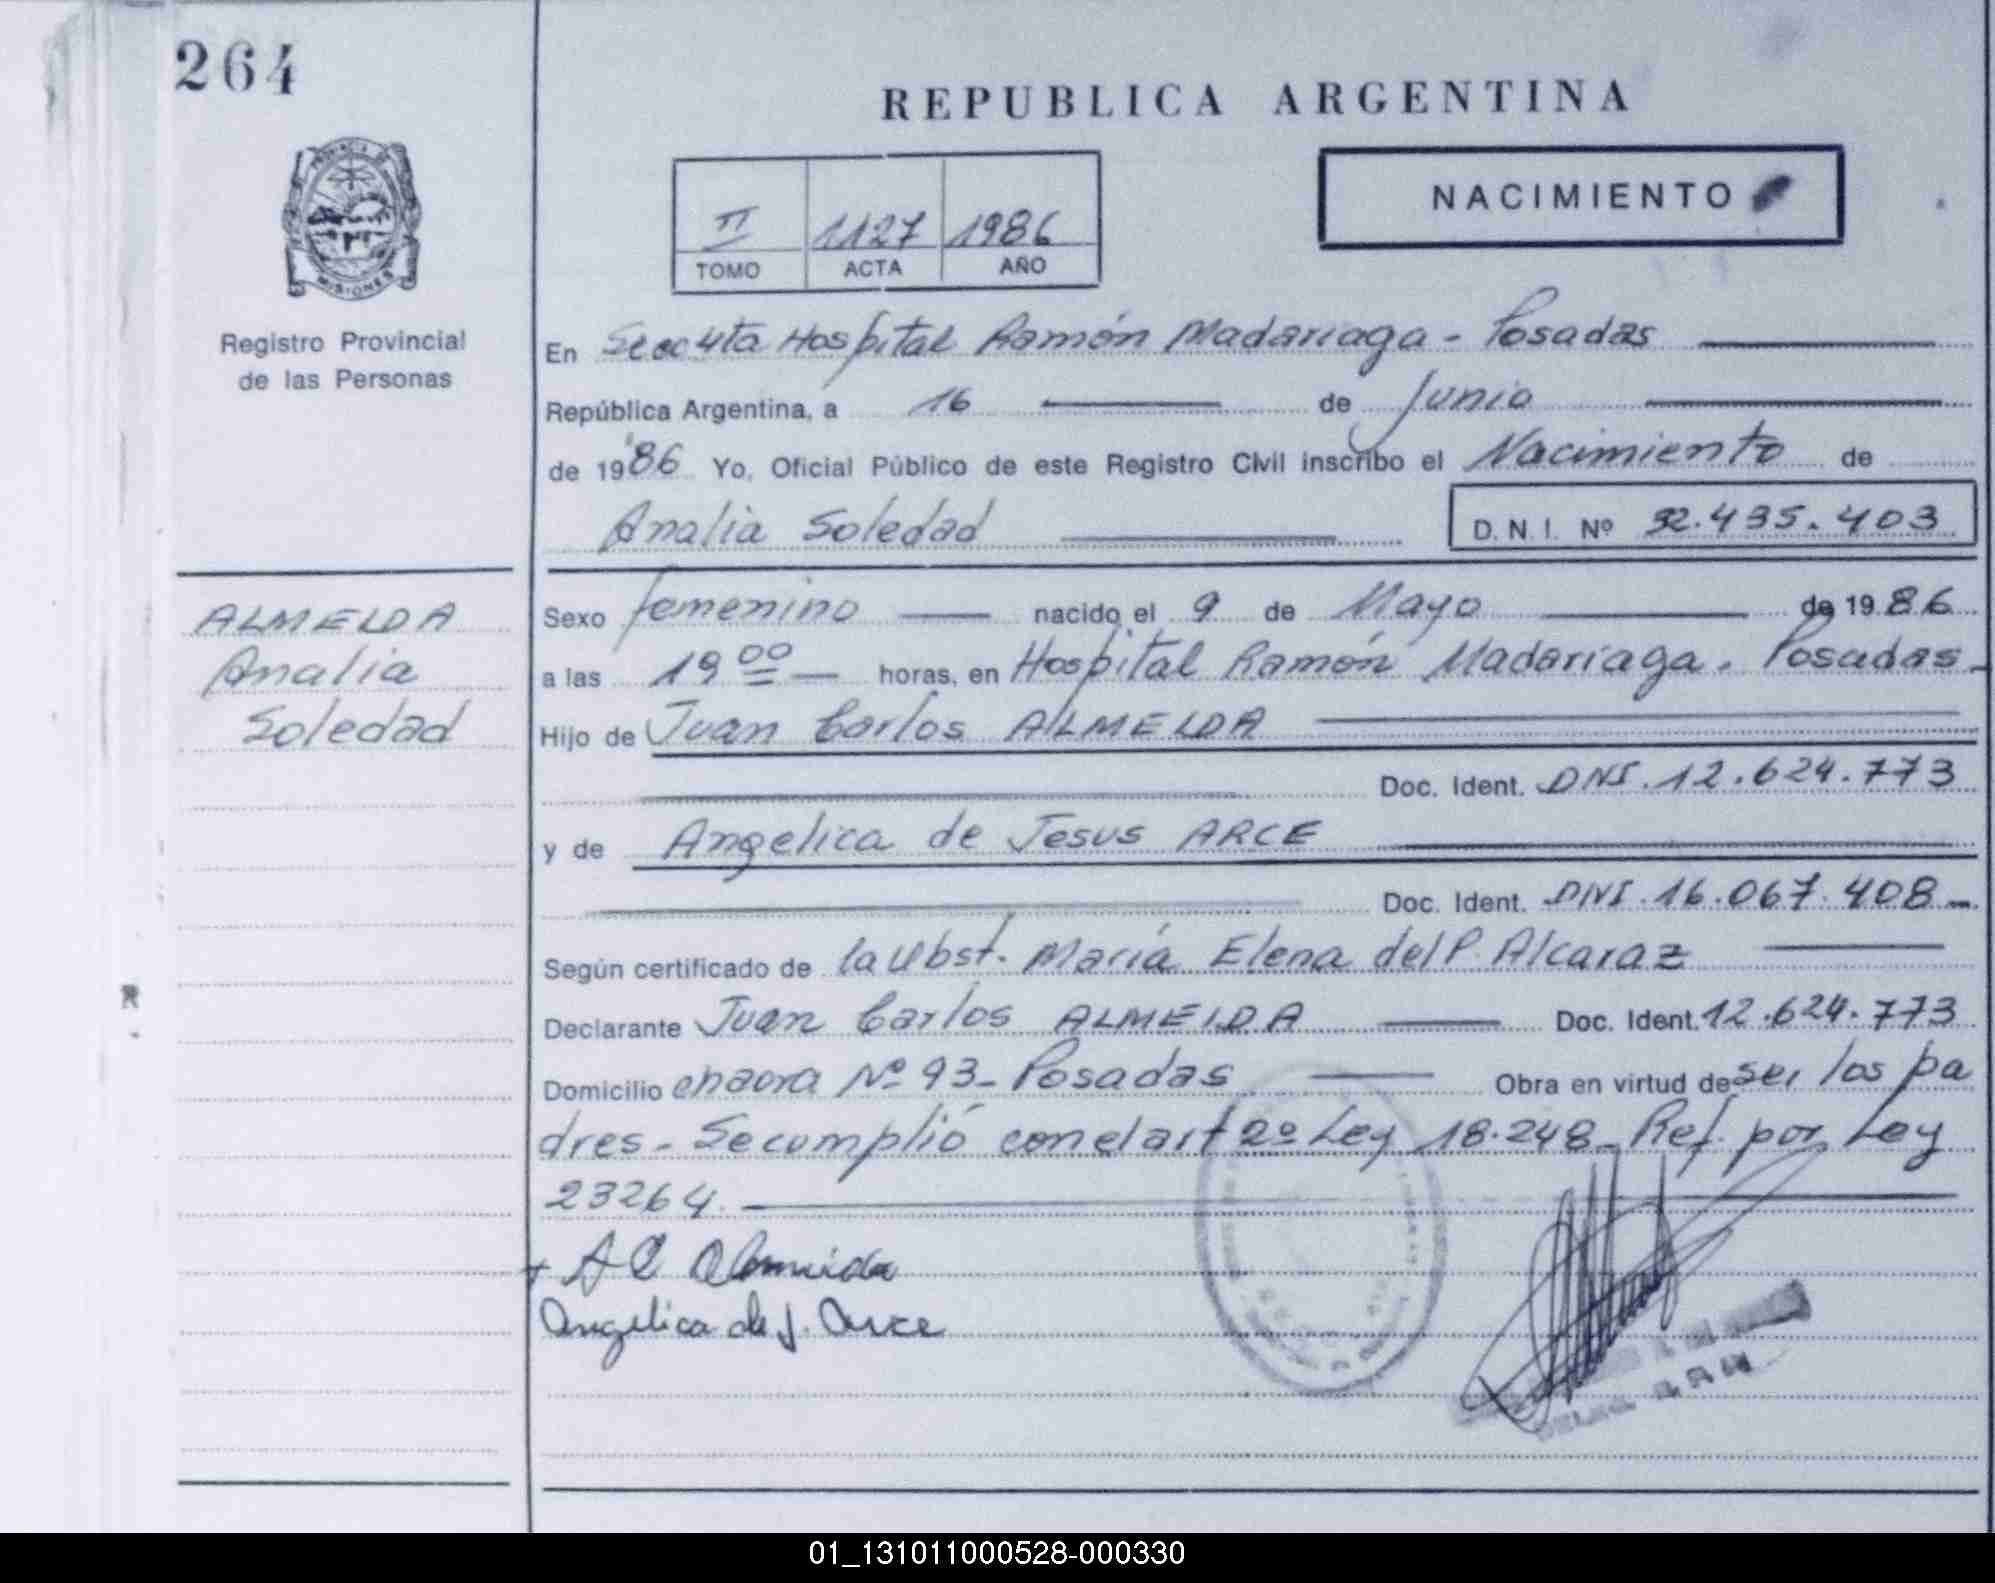 264
REPUBLICA ARGENTINA
PROVINCIA DE
MISIONES
II 1127 1986
TOMO ACTA AÑO
NACIMIENTO
Registro Provincial
de las Personas
En Secc 4ta Hospital Ramón Madariaga - Posadas
República Argentina, a 16 de Junio
de 1986 Yo, Oficial Público de este Registro Civil inscribo el Nacimiento de
Analia Soledad D. N. I. Nº 32.435.403
ALMEIDA
Analia
Soledad
Sexo femenino nacido el 9 de Mayo de 1986
a las 19 00 horas, en Hospital Ramón Madariaga - Posadas -
Hijo de Juan Carlos ALMEIDA
Doc. Ident. DNI. 12.624.773
y de Angelica de Jesus ARCE
Doc. Ident. DNI. 16.067.408 -
Según certificado de la Obst. María Elena del P. Alcaraz
Declarante Juan Carlos ALMEIDA Doc. Ident. 12.624.773
Domicilio chacra Nº 93 - Posadas Obra en virtud de ser los pa
dres - Se cumplió con el art 2º Ley 18.248 - Ref. por Ley
23264.
Almeida
Angelica de J. Arce
01_131011000528-000330